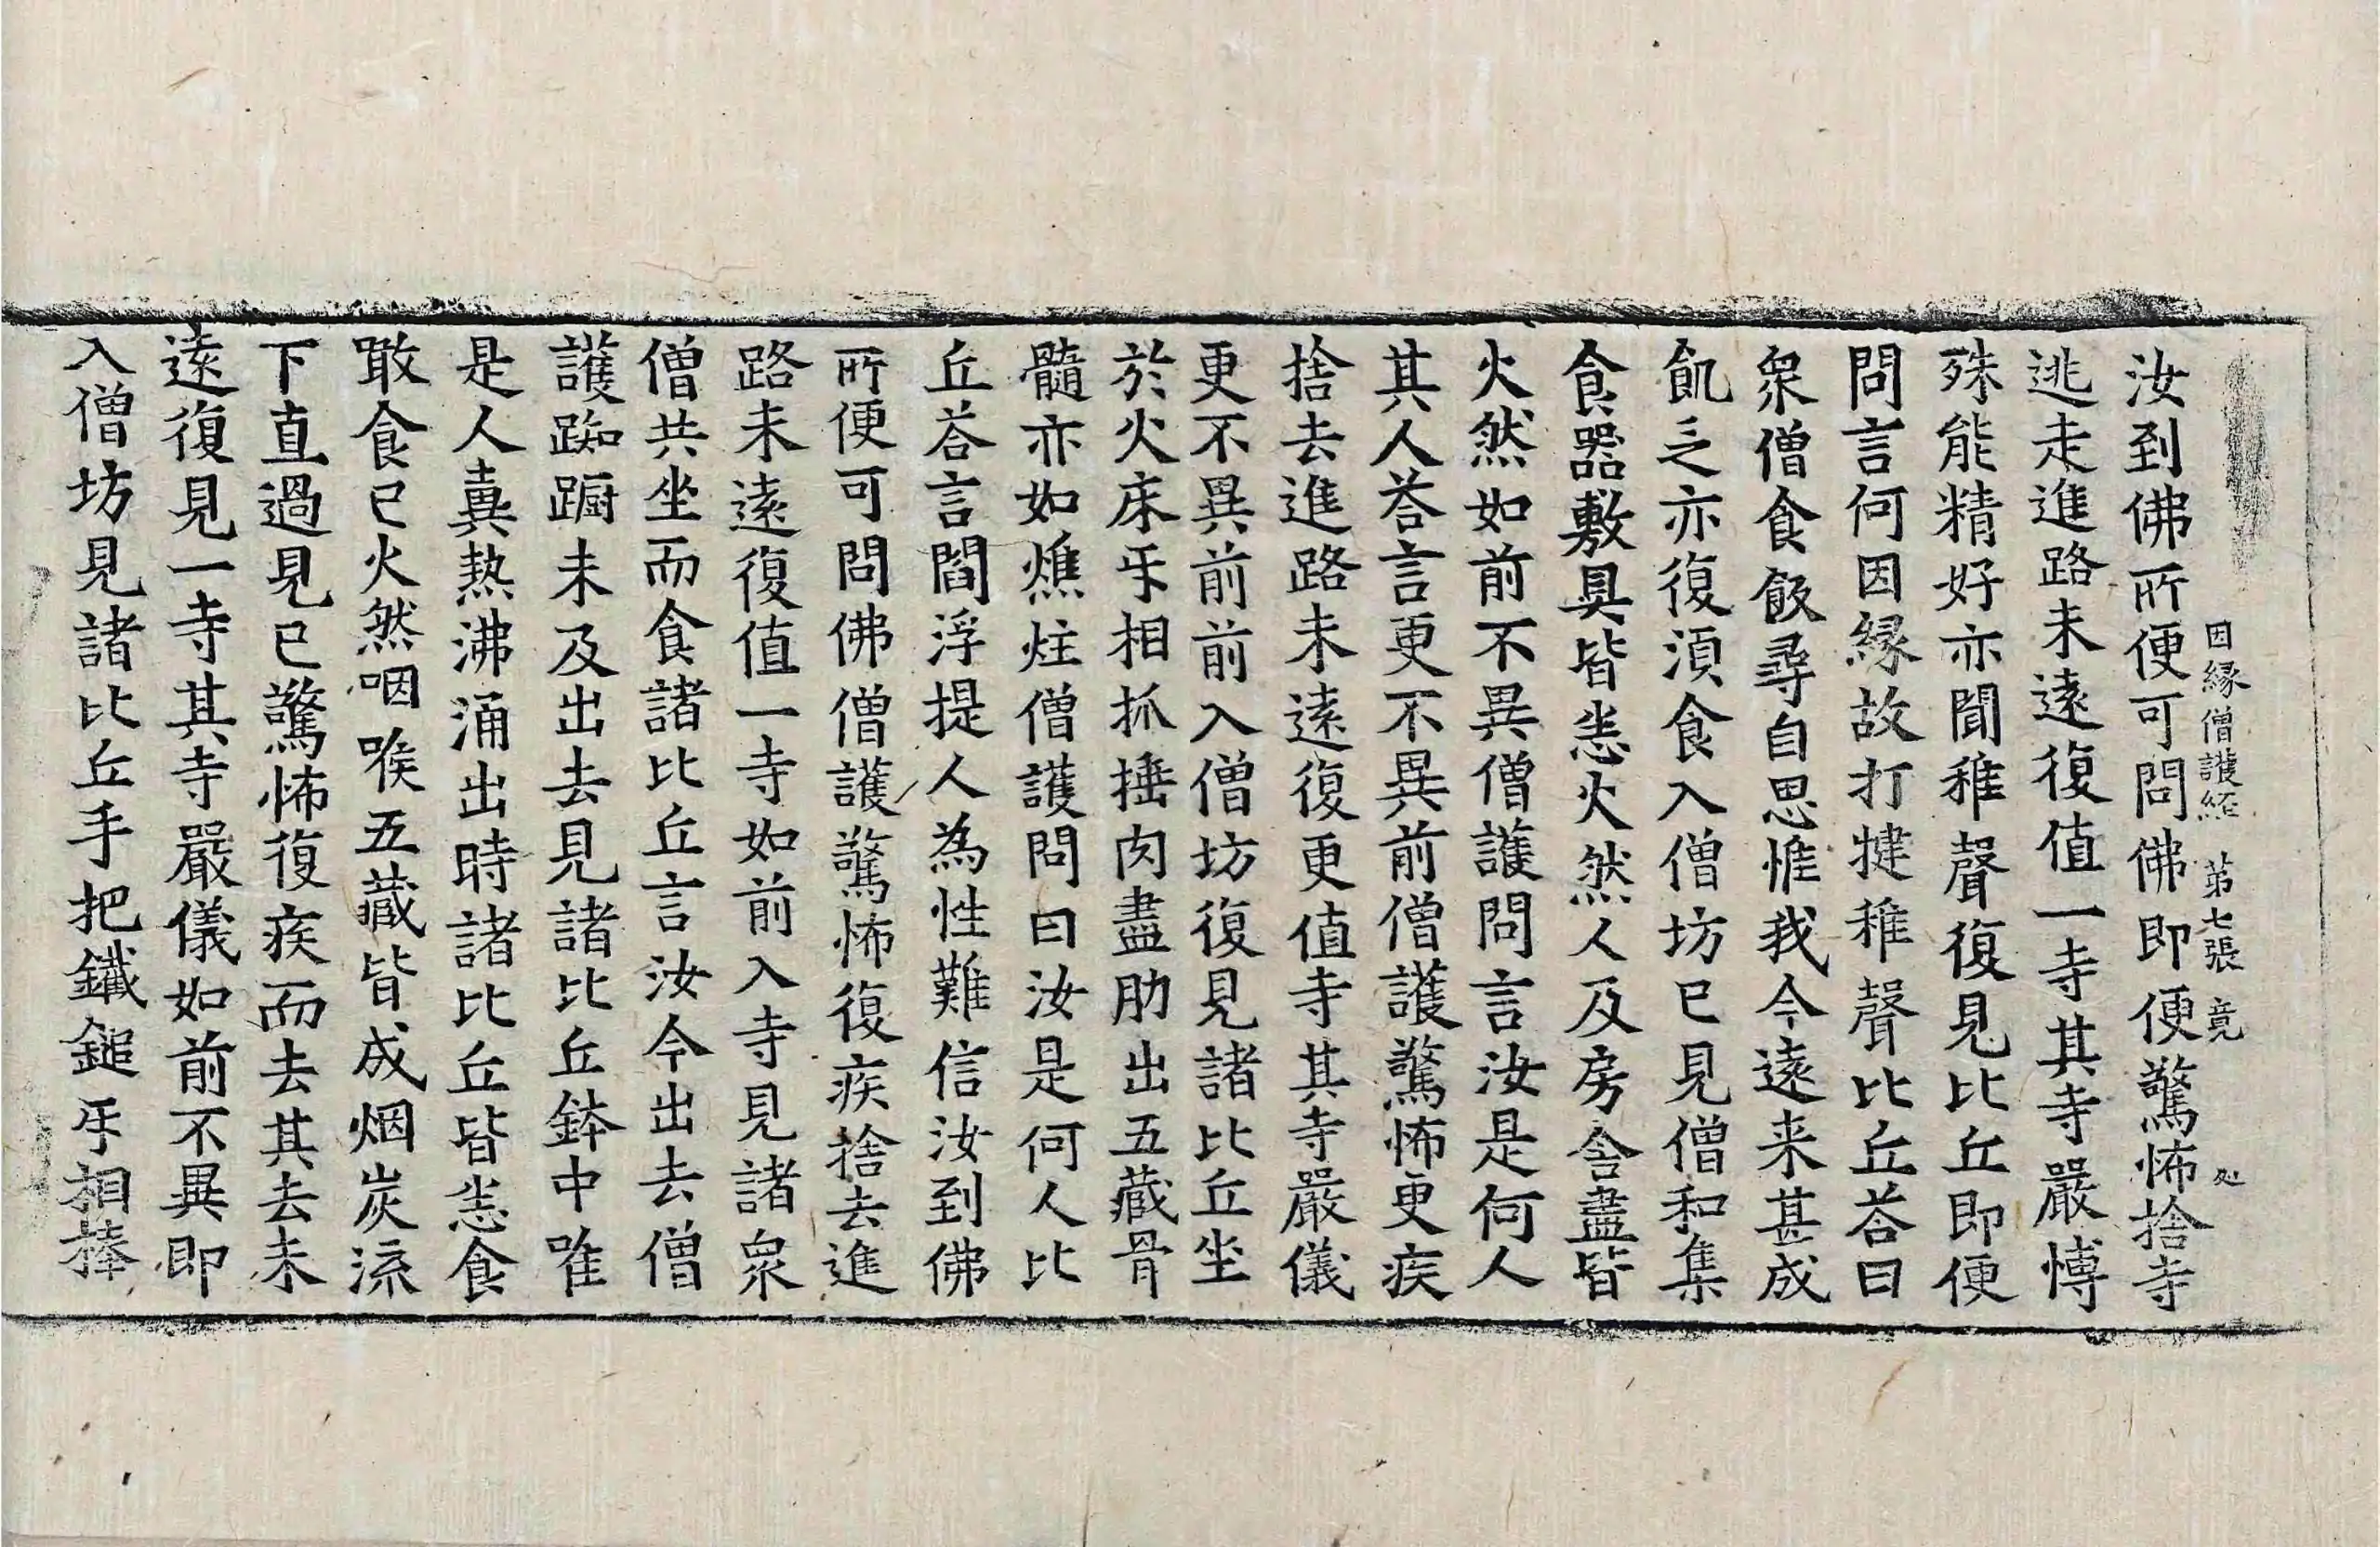 因縁僧護経 第七張 竟 处
汝到佛所便可問佛即便驚怖捨寺
逃走進路未遠復值一寺其寺嚴愽
殊能精好亦聞稚聲復見比丘即便
問言何因縁故打揵稚聲比丘荅曰
衆僧食飯尋自思惟我今遠来甚成
飢乏亦復湏食入僧坊已見僧和集
食器敷具皆悉火然人及房舎盡皆
火然如前不異僧護問言汝是何人
其人荅言更不異前僧護驚怖更疾
捨去進路未遠復更值寺其寺嚴儀
更不異前前入僧坊復見諸比丘坐
於火床㸦相抓捶肉盡肋出五蔵骨
髓亦如燋炷僧護問曰汝是何人比
丘荅言閻浮提人為性難信汝到佛
所便可問佛僧護驚怖復疾捨去進
路未遠復值一寺如前入寺見諸衆
僧共坐而食諸比丘言汝今出去僧
護踟蹰未及出去見諸比丘鉢中唯
是人糞熱沸涌出時諸比丘皆悉食
噉食已火然咽喉五蔵皆成烟炭流
下直過見已驚怖復疾而去其去未
遠復見一寺其寺嚴儀如前不異即
入僧坊見諸比丘手把鐵鎚㸦相棒